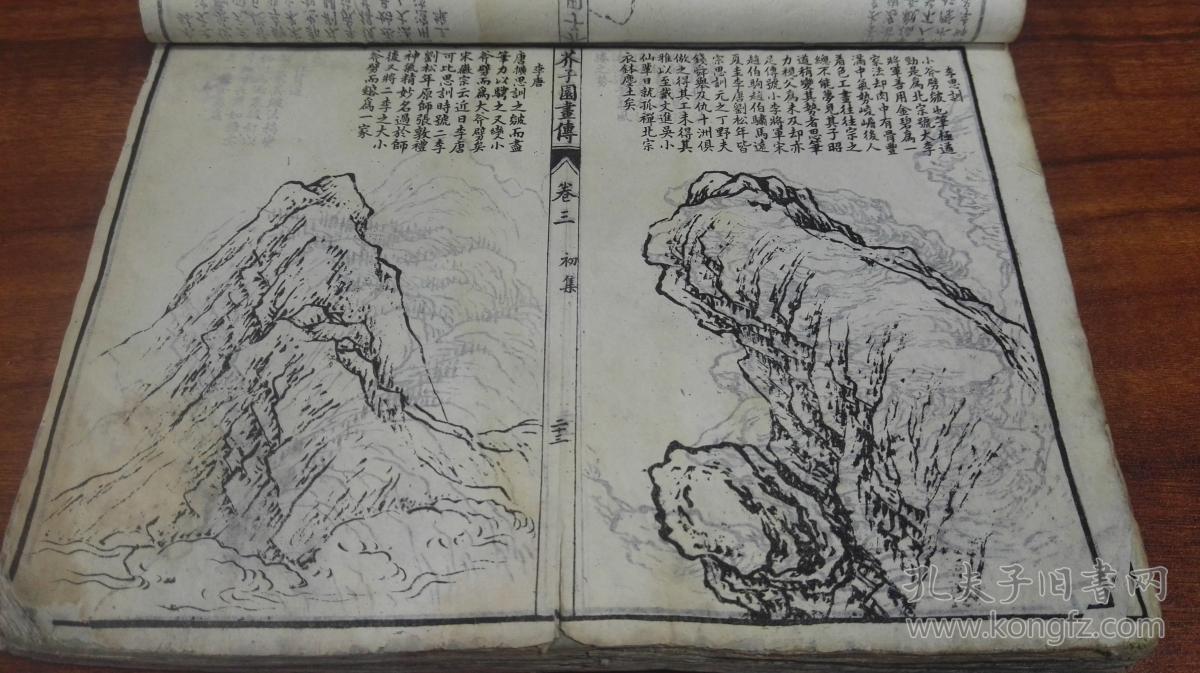 李思訓
小斧劈皴也筆極遒
勁是為北宗號大李
將軍善用金碧為一
家法却肉中有骨豐
滿中氣勢峻嶒後人
着色工畫往往宗之
總不能夢見其子昭
道稍變其勢者思筆
力視久為未及却亦
足傳號小李將軍宋
趙伯駒趙伯驌馬遠
夏圭李唐劉松年皆
宗思訓元之丁野夫
錢舜舉及仇十洲俱
倣之得其工未得其
雅以至戴文進吳小
仙輩日就狐禪北宗
衣鉢塵土矣
芥子園畫傳
卷三
初集
李唐
唐擴思訓之皴而盡
筆力以騁之又變小
斧劈而為大斧劈矣
宋徽宗云近日李唐
可比思訓時號二李
劉松年原師張敦禮
神氣精妙名過於師
後又將二李之大小
斧劈而鎔為一家
孔夫子旧書网
www.kongfz.com